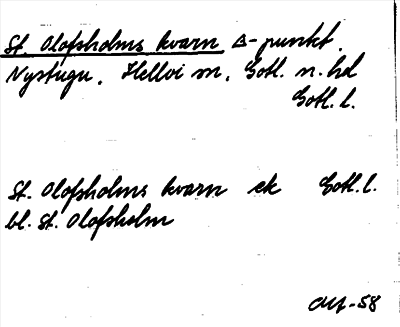 St. Olofsholms kvarn ∆-punkt.
Nystugu, Hellvi sn, Gotl. n. hd
Gotl. l.
St. Olofsholms kvarn ek Gotl. l.
bl. St. Olofsholm
-58